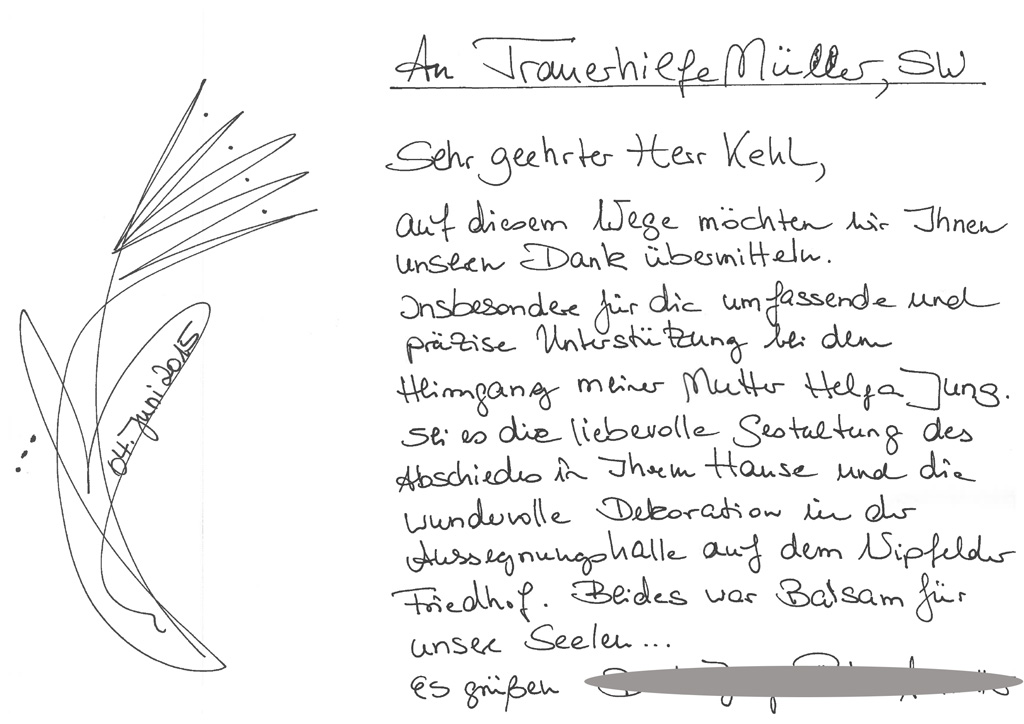 An Trauerhilfe Müller, SW
Sehr geehrter Herr Kehl,
auf diesem Wege möchten wir Ihnen
unseren Dank übermitteln.
Insbesondere für die umfassende und
präzise Unterstützung bei dem
Heimgang meiner Mutter Helga Jung.
Sei es die liebevolle Gestaltung des
Abschiedes in Ihrem Hause und die
wundervolle Dekoration in der
Aussegnungshalle auf dem Nipfelder
Friedhof. Beides war Balsam für
unsere Seelen...
Es grüßen
04. Juni 2015